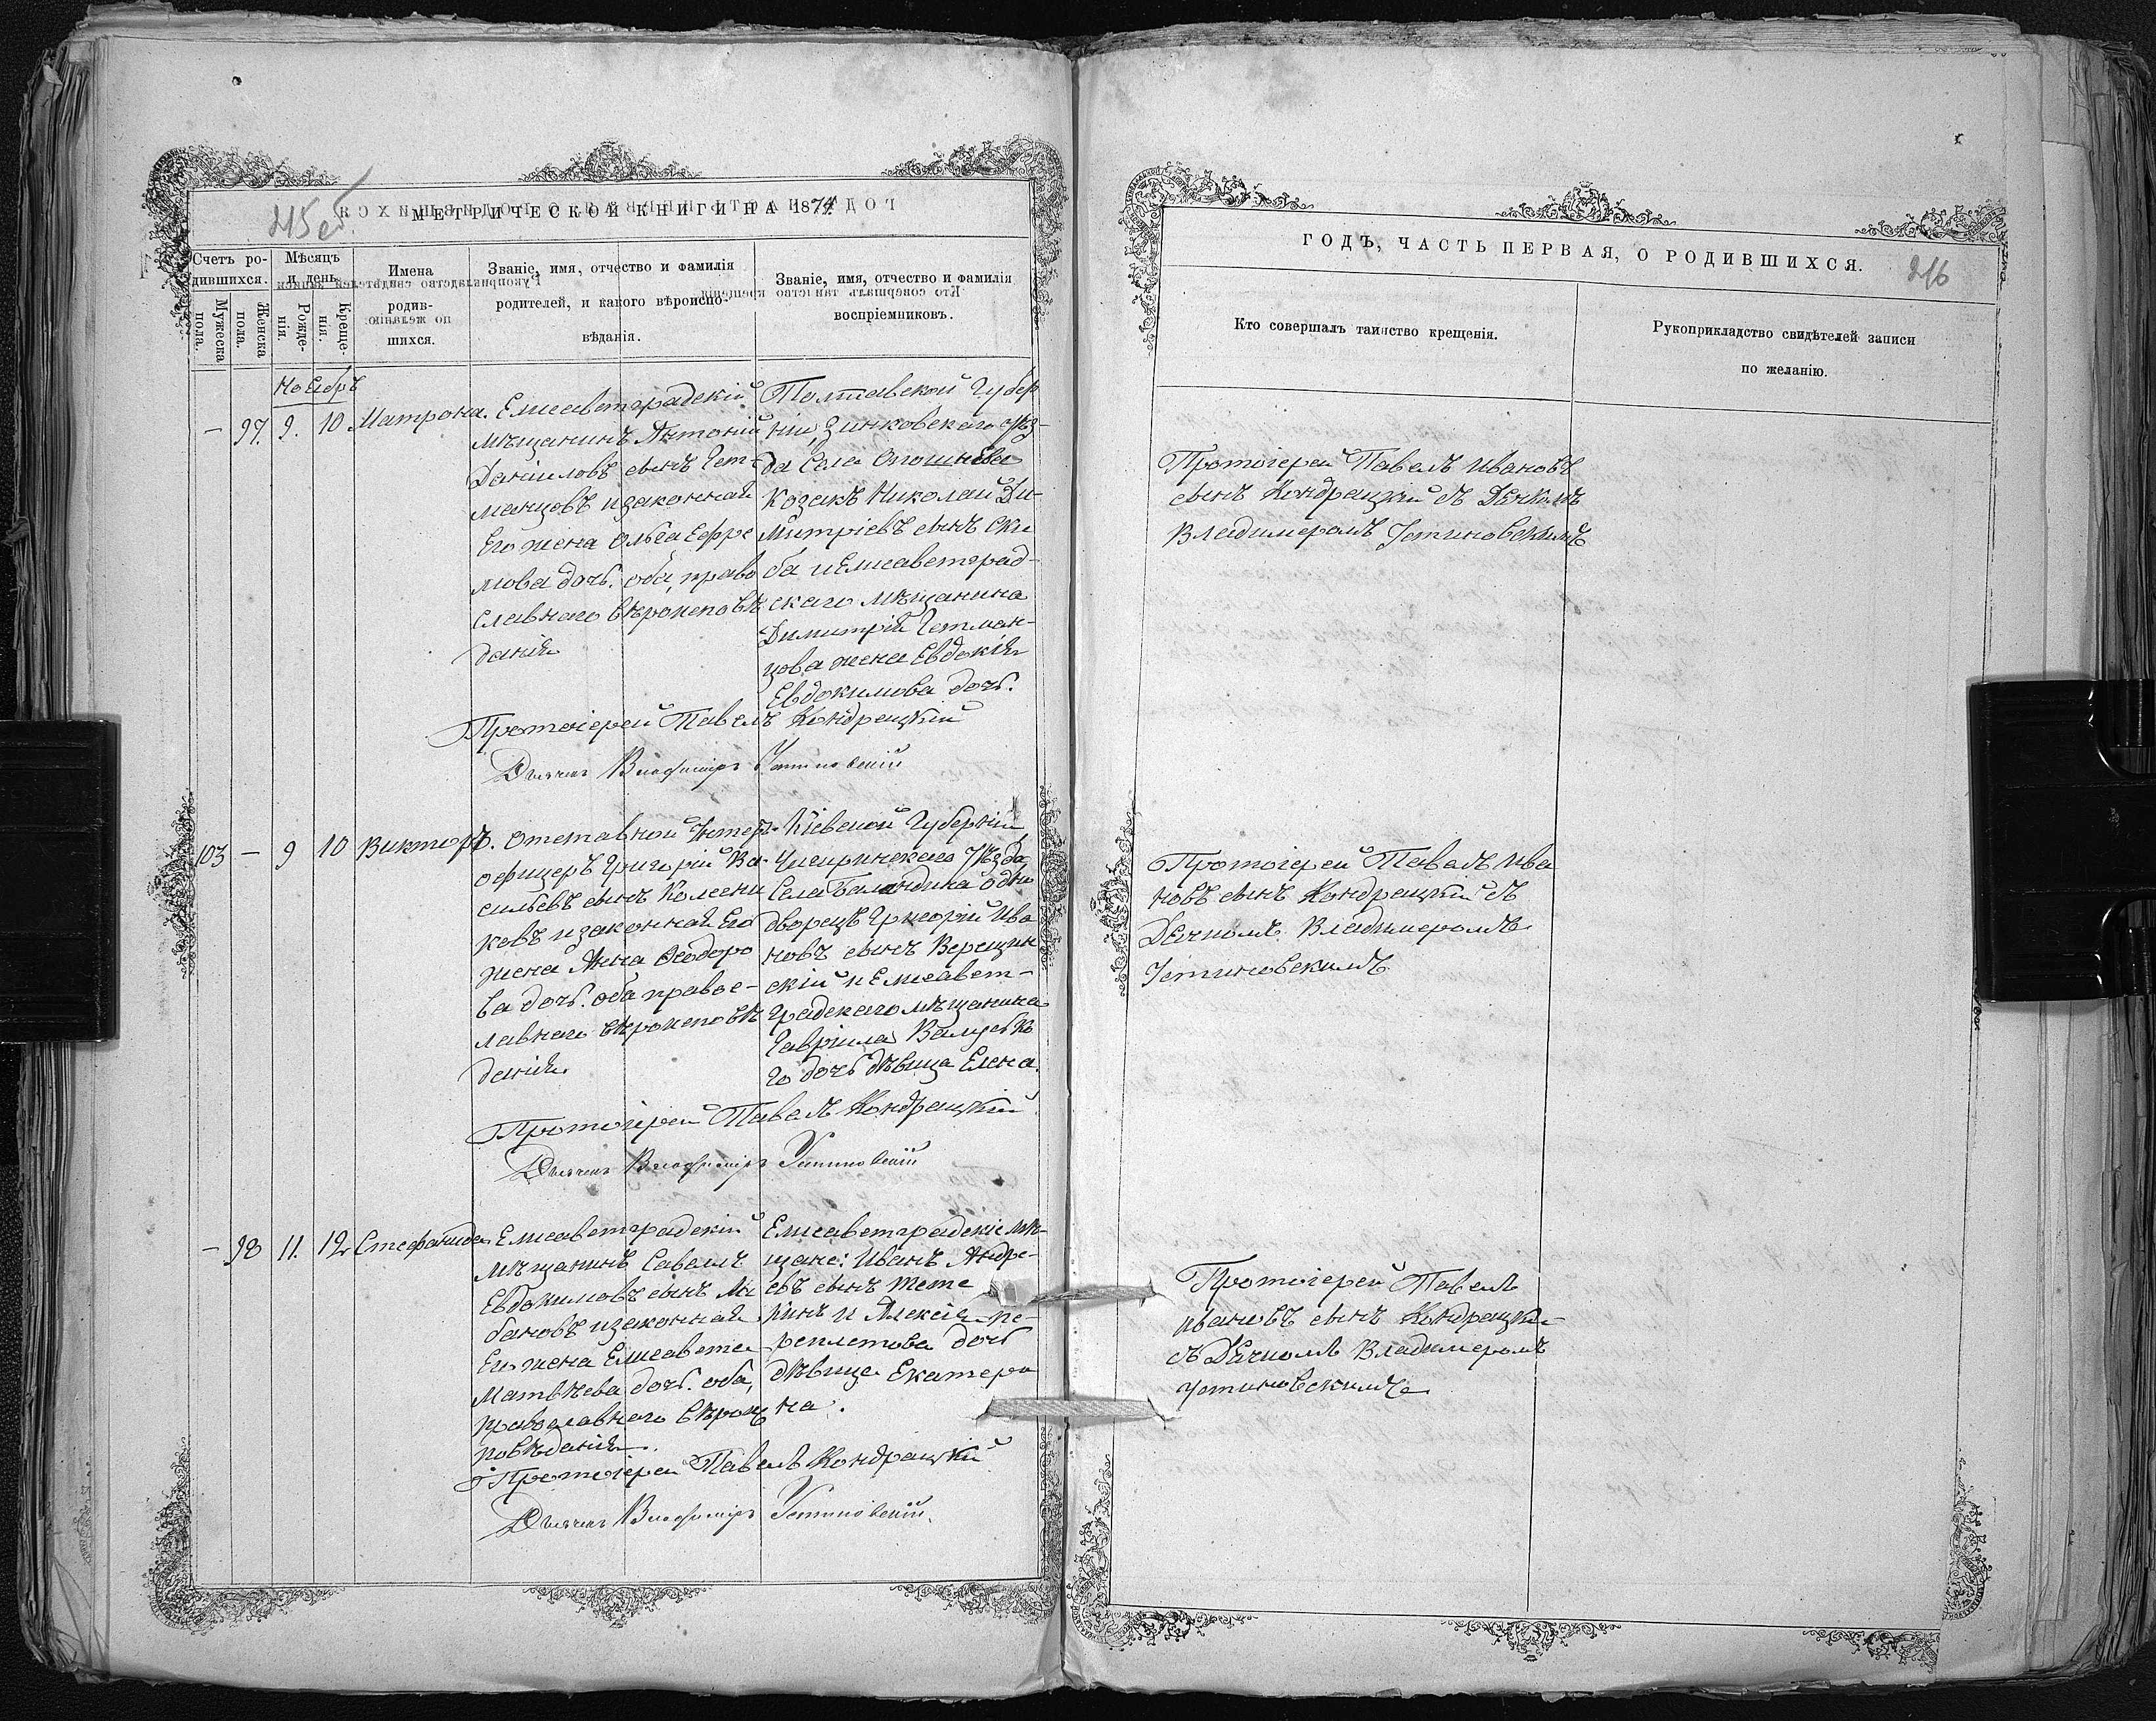 215 об.
МЕТРИЧЕСКОЙ КНИГИ НА 1874
Счетъ ро-
дившихся.
Мужеска
пола.
Женска
пола.
Мѣсяцъ
и день
Рожде-
нія.
Креще-
нія.
Имена
родив-
шихся.
Званіе, имя, отчество и фамилія
родителей, и какого вѣроиспо-
вѣданія.
Званіе, имя, отчество и фамилія
воспріемниковъ.
Ноябрь
— 97. 9. 10 Матрона.
Елисаветградскій
мѣщанинъ Антоній
Даніиловъ сынъ Гет-
манцовъ изаконная
Его жена Ольга Ефре
мова дочь. оба, право
славнаго вѣроисповѣ
данія
Полтавской Губер
ніи, Зинковскаго Уѣз-
да Села Опошнева
козакъ Николай Ди-
митріевъ сынъ Ски
ба и Елисаветград-
скаго мѣщанина
Димитрій Гетман-
цова жена Евдокія
Евдокимова дочь.
Протоіерей Павелъ Кондрацкій
Дьячекъ Владиміръ Устиновскій
103 — 9 10 Викторъ.
Отставной Унтеръ-
офицеръ Григорій Ва-
сильевъ сынъ Колесни
ковъ изаконная Его
жена Анна Ѳеодоро
ва дочь. оба правос-
лавнаго вѣроисповѣ
данія.
Кіевской Губерніи
Чигиринскаго Уѣзда,
Села Баландина одно
дворецъ Григорій Ива
новъ сынъ Верещин
скій и Елисавет-
градскаго мѣщанина
Гавріила
го дочь дѣвица Елена.
Протоіерей Павелъ Кондрацкій
Дьячекъ Владиміръ Устиновскій
— 98 11. 12 Стефанида
Елисаветградскій
мѣщанинъ Савелъ
Евдокимовъ сынъ
бановъ изаконная
Его жена Елисавета
Матвѣева дочь. оба,
православнаго вѣроис
повѣданія.
Елисаветградскіе мѣ-
щане: Иванъ Андре-
евъ сынъ Тете
ринъ и Алексія пе-
реплетова дочь
дѣвица Екатери
на.
Протоіерей Павелъ Кондрацкій
Дьячекъ Владиміръ Устиновскій.
ГОДЪ, ЧАСТЬ ПЕРВАЯ, О РОДИВШИХСЯ.
216
Кто совершалъ таинство крещенія.
Рукоприкладство свидѣтелей записи
по желанію.
Протоіерей Павелъ Ивановъ
сынъ Кондрацкій съ Дячкомъ
Владимеромъ Устиновскимъ
Протоіерей Павелъ Ива
новъ сынъ Кондрацкій съ
Дячкомъ Владимеромъ
Устиновскимъ
Протоіерей Павелъ
Ивановъ сынъ Кондрацкій
съ Дячкомъ Владимеромъ
Устиновскимъ